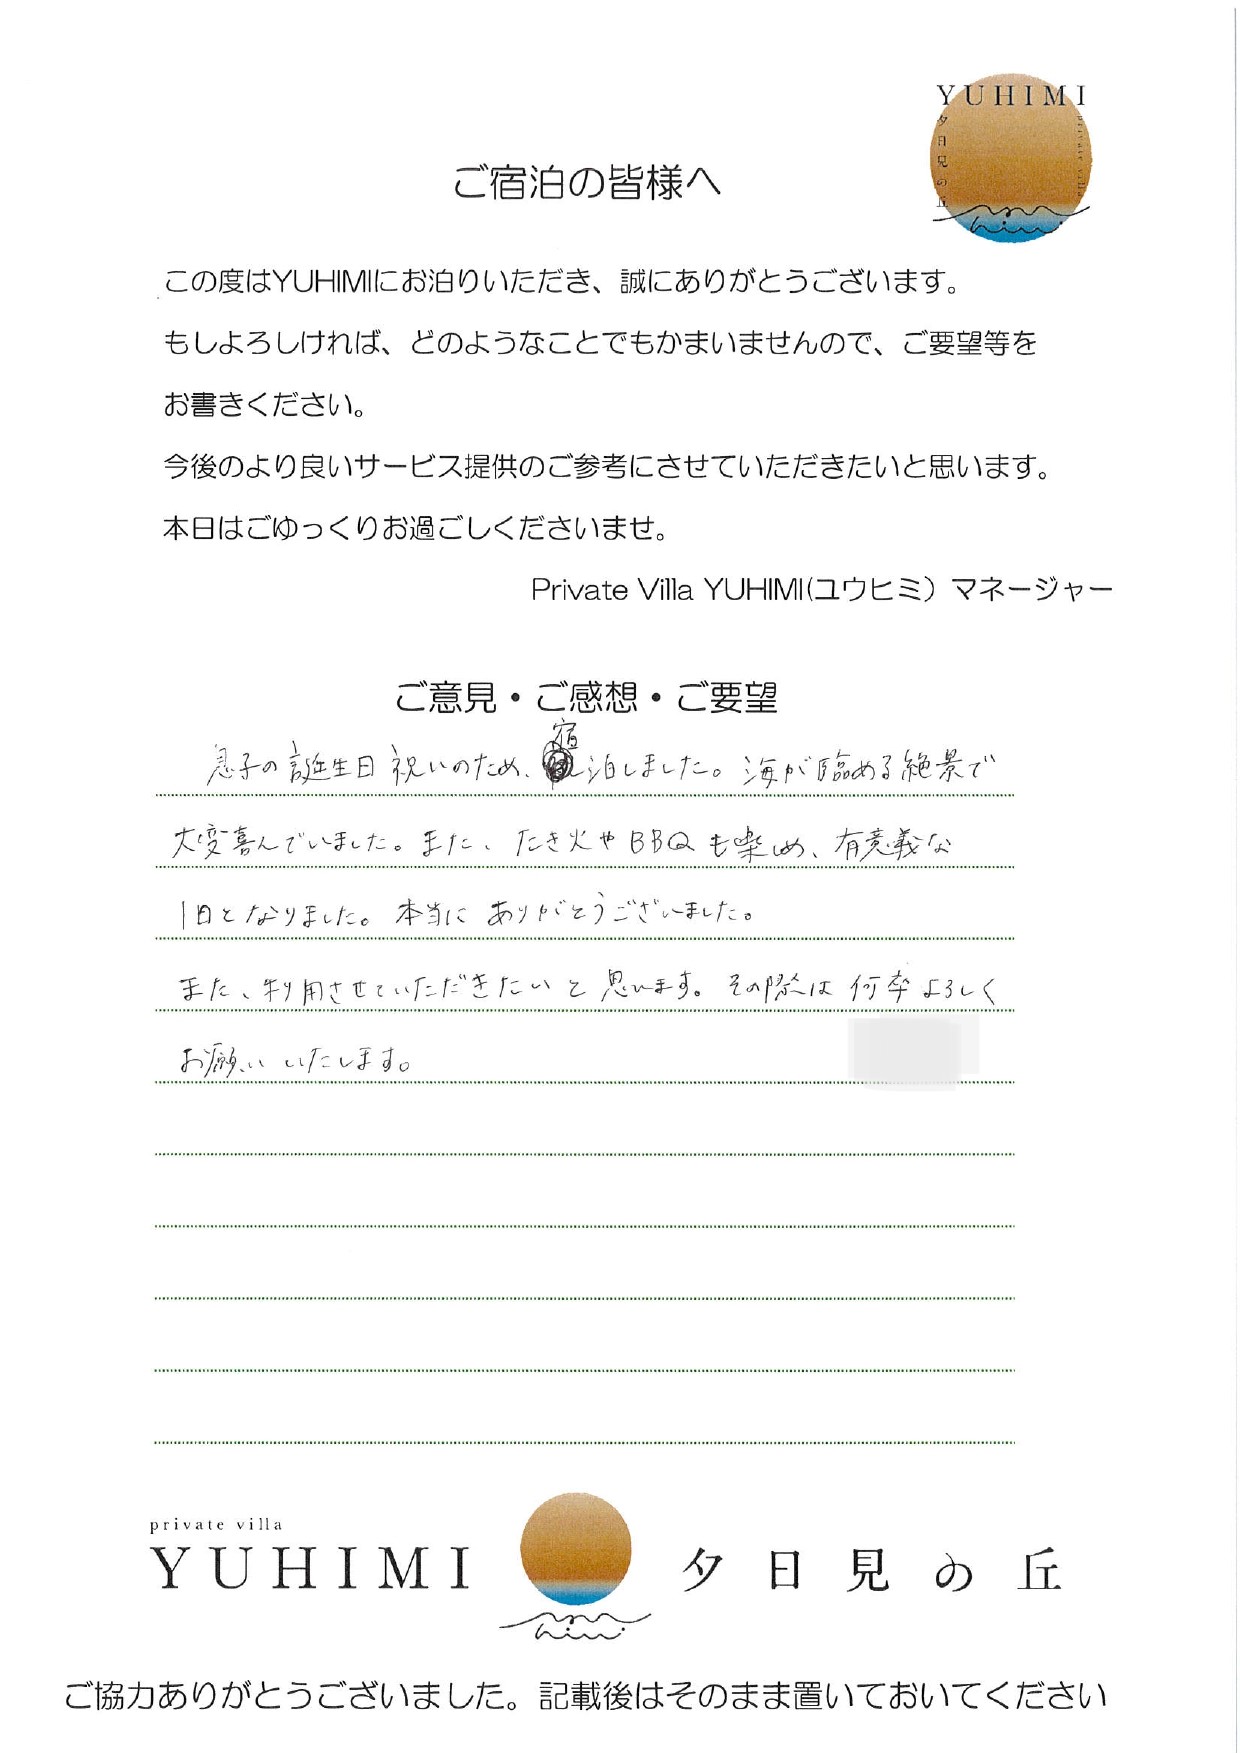 YUHIMI
夕日見の丘
private villa
ご宿泊の皆様へ
この度はYUHIMIにお泊りいただき、誠にありがとうございます。
もしよろしければ、どのようなことでもかまいませんので、ご要望等を
お書きください。
今後のより良いサービス提供のご参考にさせていただきたいと思います。
本日はごゆっくりお過ごしくださいませ。
Private Villa YUHIMI(ユウヒミ）マネージャー
ご意見・ご感想・ご要望
息子の誕生日祝いのため、宿泊しました。海が臨める絶景で
大変喜んでいました。また、たき火やBBQも楽しめ、有意義な
1日となりました。本当にありがとうございました。
また、利用させていただきたいと思います。その際は何卒よろしく
お願いいたします。
private villa
YUHIMI 夕日見の丘
ご協力ありがとうございました。記載後はそのまま置いておいてください